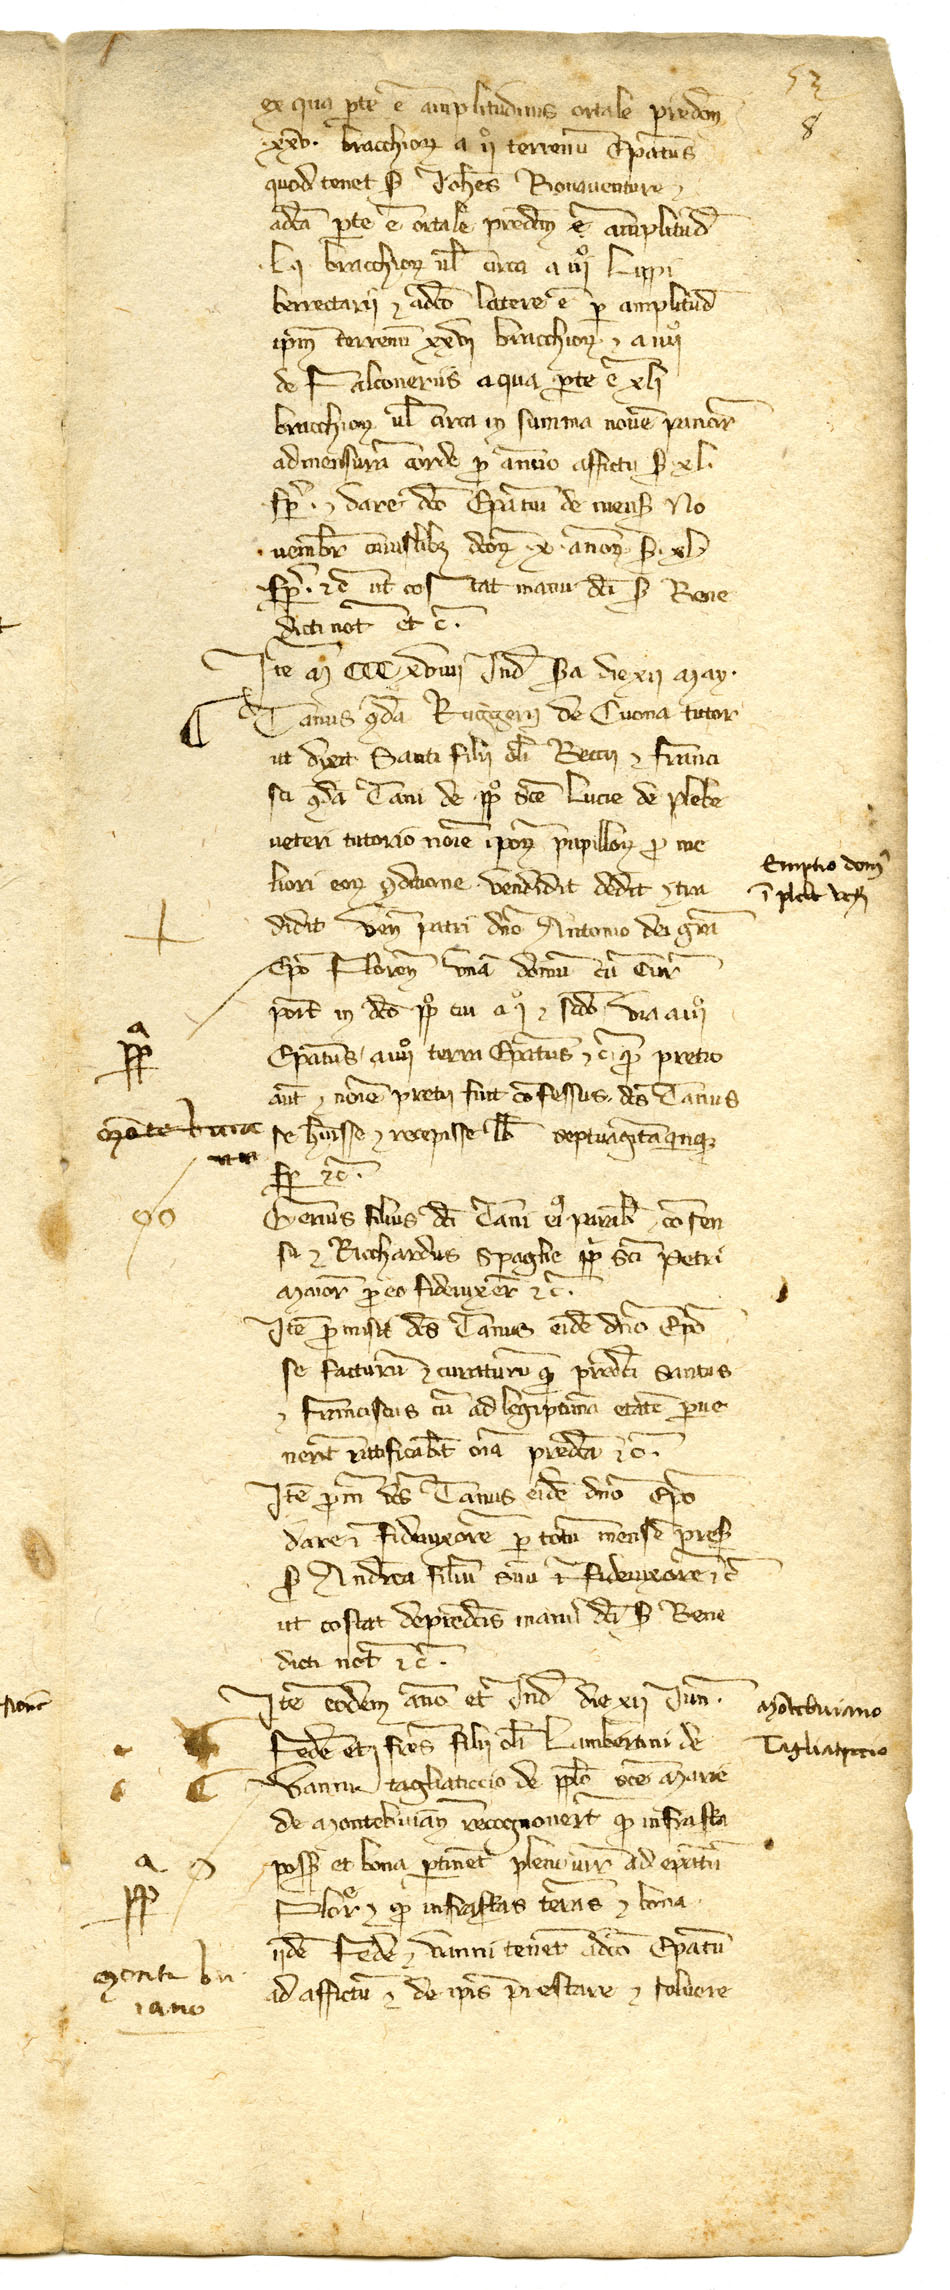 53
8
ex qua pte ē amplitudinis ortale predcm
.xxv. bracchioꝝ a ij terrenū Epatus
quod tenet S Johes Bonaventure ⁊
adcā pte ē ortale predcm ē amplitud
.Lj. bracchioꝝ ul circa a iijº Lippi
berrectarij ⁊ adco latere ē p amplitud
ipm terrenū xxvj bracchioꝝ ⁊ a iiijº
de Falconerijs a qua pte ē xlj
bracchioꝝ ul circa in summa novē panor
ad mensurā corde p annuo affictu S xl.
fp. ⁊ dare dco Epatui de mens No
vembr cuiuslibꝫ dcoꝝ .x. annoꝝ S. xl.
fp. ⁊c ut costat manu dci S Bene
dicti not et c.
Itē M CCC xlviiij Ind sca die xij May.
Tanus qda Ruggerij de Cuona tutor
ut dixit Santi filij oli Beccij ⁊ Franci
sci qda Tani de ppº sce Lucie de plebe
veteri tutorio noie ipoꝝ pupilloꝝ p me
liori eoꝝ 9ditione vendidit dedit ⁊ tra
didit Ven patri dno Antonio dei gra
Epo Floren unā domū cū Cur
posit in dco ppº cui a jº ⁊ scdº via a iijº
Epatus a iiijº terra Epatus ⁊c. p pretio
aut ⁊ noie pretij fuit cōfessus dcs Tanus
se huisse ⁊ recepisse lb septuagītaqnqꝫ
fp ⁊c.
Gerius filius dci Tani ei parab ⁊ cōsen
su ⁊ Ricchardus Spaglie ppli sci Petri
maior p eo fideiuxer ⁊c.
Itē pmisit dcs Tanus eidē dno Epo
se facturū ⁊ curaturū q predci Santus
⁊ Franciscus cū ad legiptimā etatē pve
nerit ratificabūt oia predca ⁊c.
Itē pm dcs Tanus eidē dno Epo
dare ī fideiuxorē p totū mensē pres
S Andrea filiū suū ī fideiuxorē ⁊c
ut costat de predcis manu dci S Bene
dicti not ⁊c.
Itē eodem anº et Ind die xij Jun.
Fede et fres filij oli Lambertini de
Vanni tagliaticcio de pplº sce Marie
de Montebuian recognoverūt q infrasta
poss et bona ptinēt pleno iure ad epatū
Flor ⁊ q infrastas terras ⁊ bona
ijdē Fede ⁊ Vanni tenēt adco Epatu
ad affictū ⁊ de ipis prestare ⁊ solvere
Emptio dom
ī pleb vet
Mōtebuiano
Tagliaticcio
monte buia
no
monte bu
iano